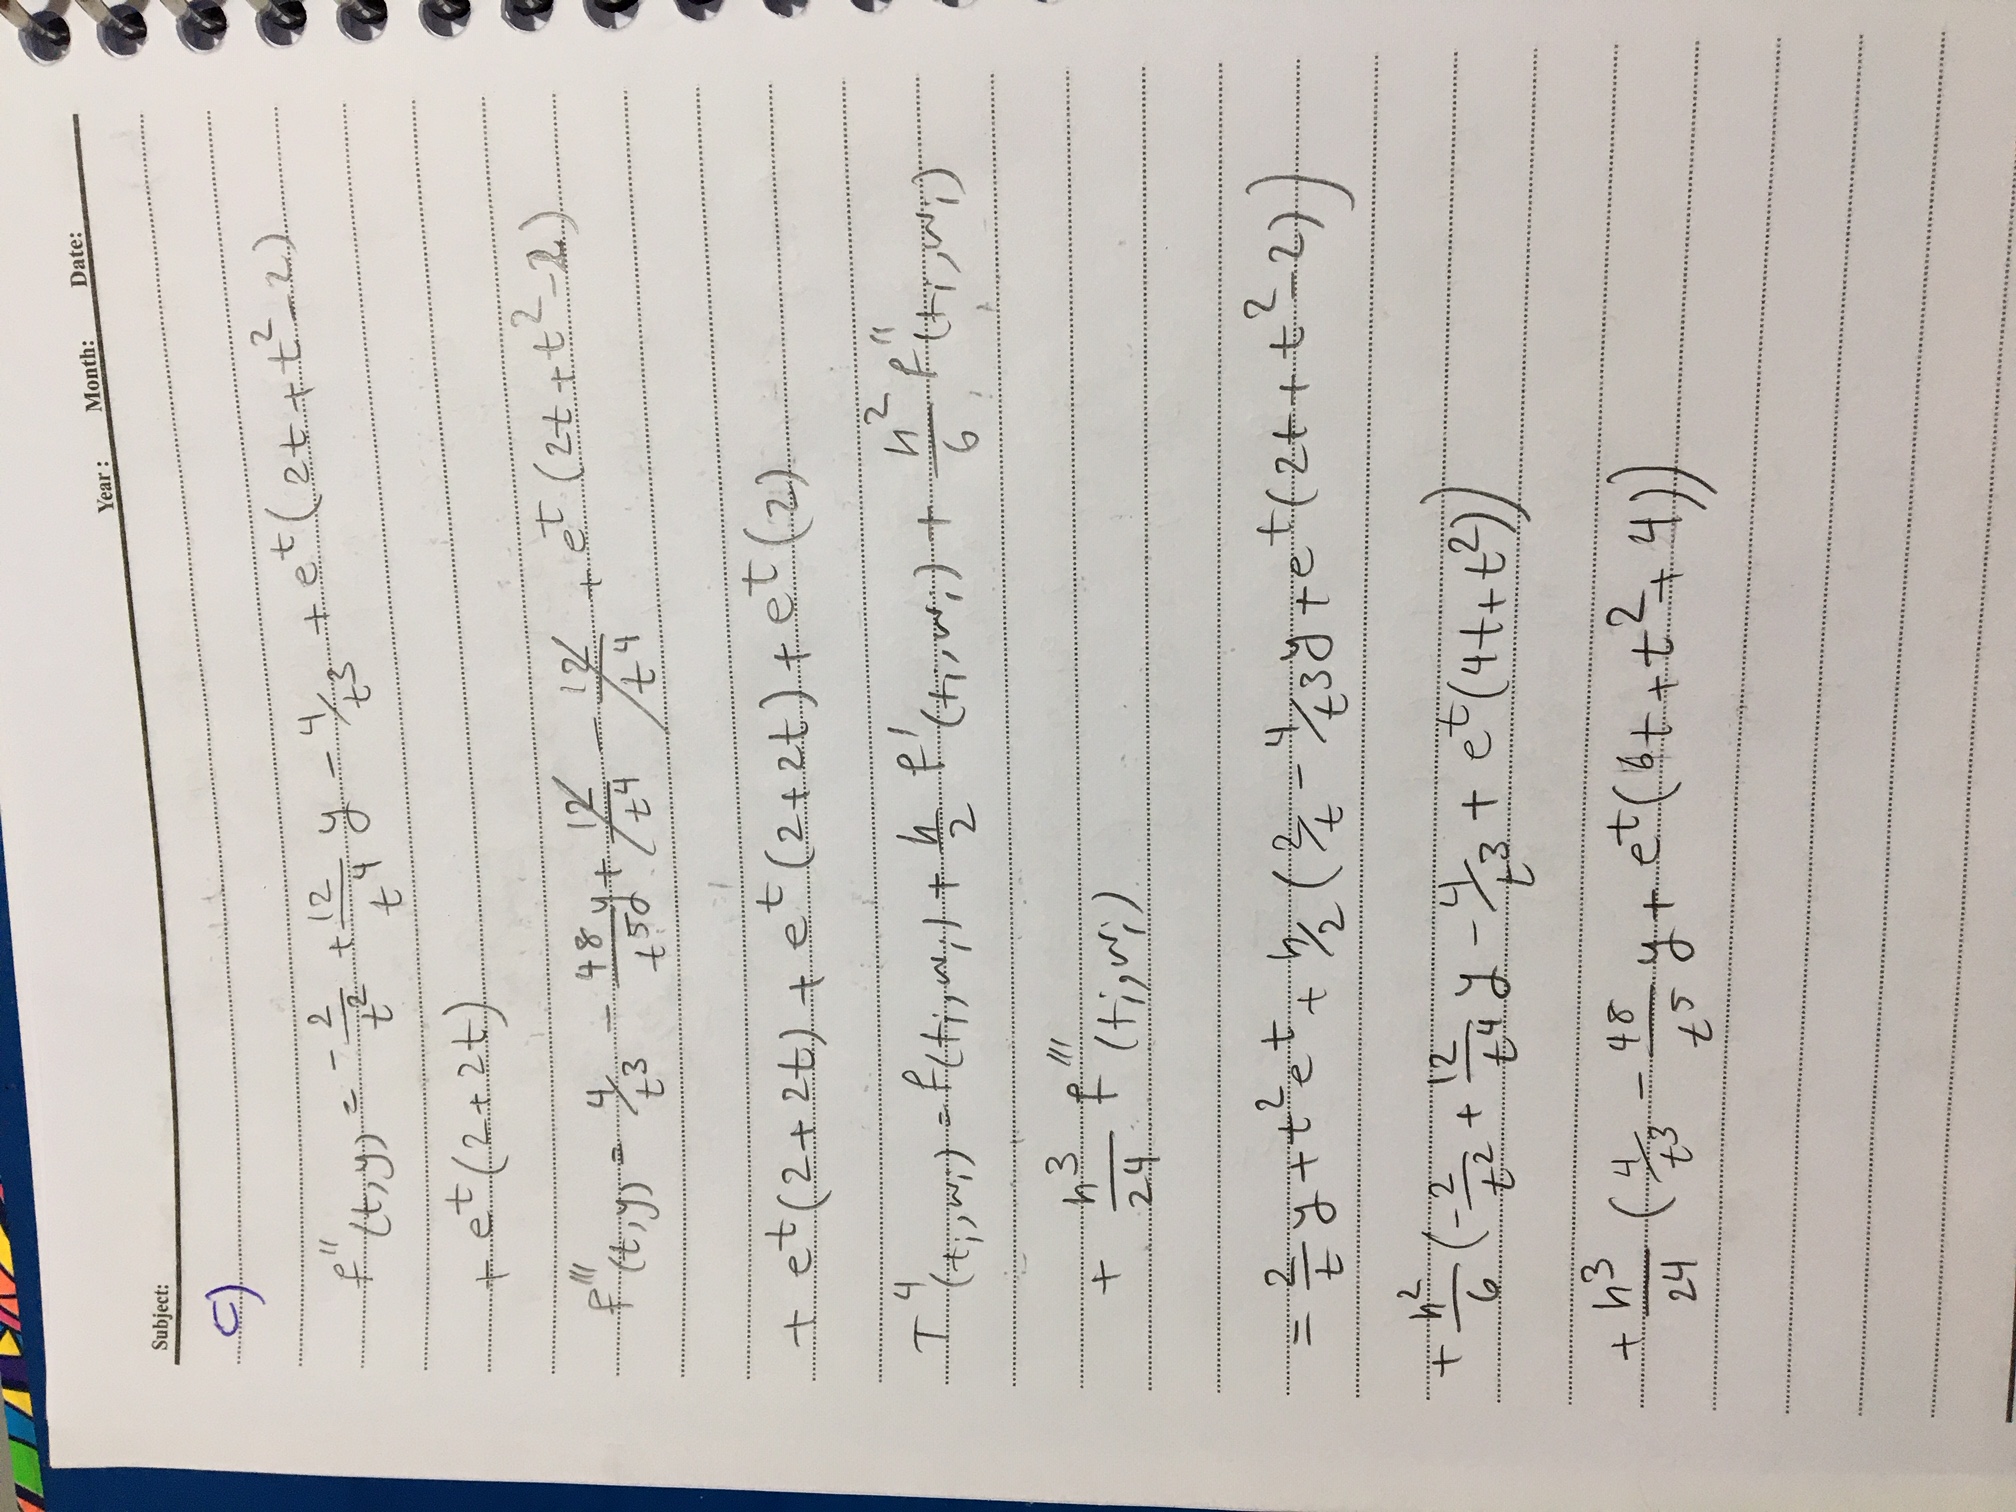 Subject:
Year: Month: Date:
c)
f''(t,y) = -2/t² + 12/t⁴ y - 4/t³ + eᵗ(2t+t²-2)
+ eᵗ(2+2t)
f'''(t,y) = 4/t³ - 48/t⁵ y + 12/t⁴ - 12/t⁴ + eᵗ(2t+t²-2)
+ eᵗ(2+2t) + eᵗ(2+2t) + eᵗ(2)
T⁴(tᵢ,wᵢ) = f(tᵢ,wᵢ) + h/2 f'(tᵢ,wᵢ) + h²/6 f''(tᵢ,wᵢ)
+ h³/24 f'''(tᵢ,wᵢ)
= 2/t y + t²eᵗ + h/2 (2/t - 4/t³ y + eᵗ(2t+t²-2))
+ h²/6 (-2/t² + 12/t⁴ y - 4/t³ + eᵗ(4t+t²))
+ h³/24 (4/t³ - 48/t⁵ y + eᵗ(6t+t²+4))